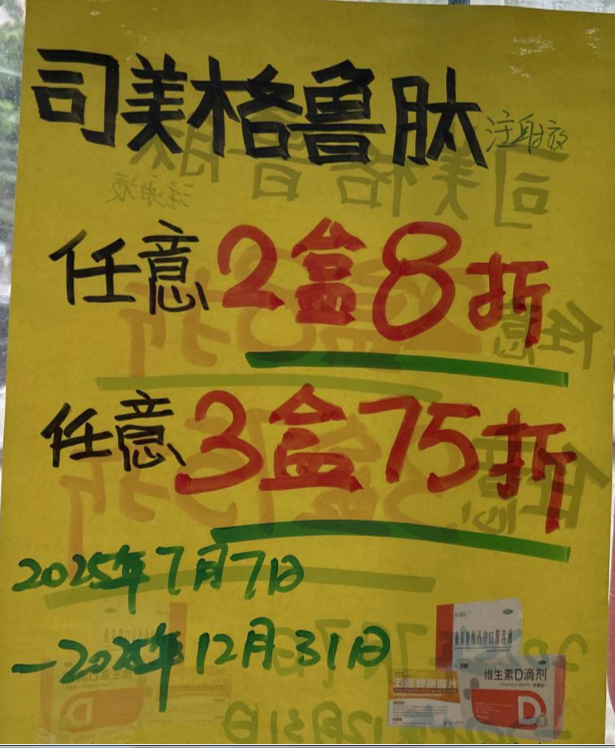 司美格鲁肽注射液
任意2盒8折
任意3盒75折
2025年7月7日
—2025年12月31日
维生素D滴剂
D